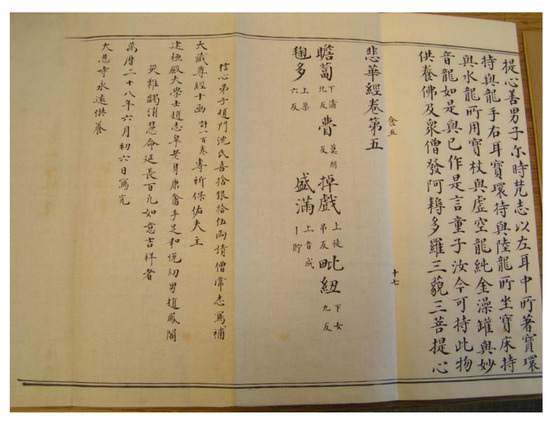 提心善男子尓時梵志以左耳中所著寶環
持與龍手右耳寶環持與陸龍所坐寶床持
與水龍所用寶杖與虛空龍純金澡罐與妙
音龍如是與已作是言童子汝今可持此物
供養佛及衆僧發阿耨多羅三藐三菩提心
金五
十七
悲華經卷第五
瞻蔔下蒲北反 瞢莫朋反 掉戲上徒吊反 毗紐下女九反
氀多上渠六反 盛滿上音成丨貯
信心弟子趙門沈氏喜捨銀拾伍兩情僧常志寫補
大藏尊經十函計一百卷專祈保佑夫主
建極殿大學士趙志皐老身康奮手足和悅幼男趙鳳閣
災難蠲消慧命延長百凡如意吉祥者
萬曆二十八年六月初六日寫完
大慈寺永遠供養